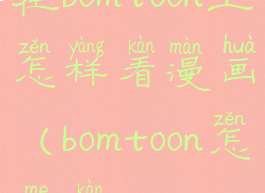 在bomtoon上
zěn yàng kàn màn huà
怎样看漫画
zěn
(bomtoon怎
me kàn